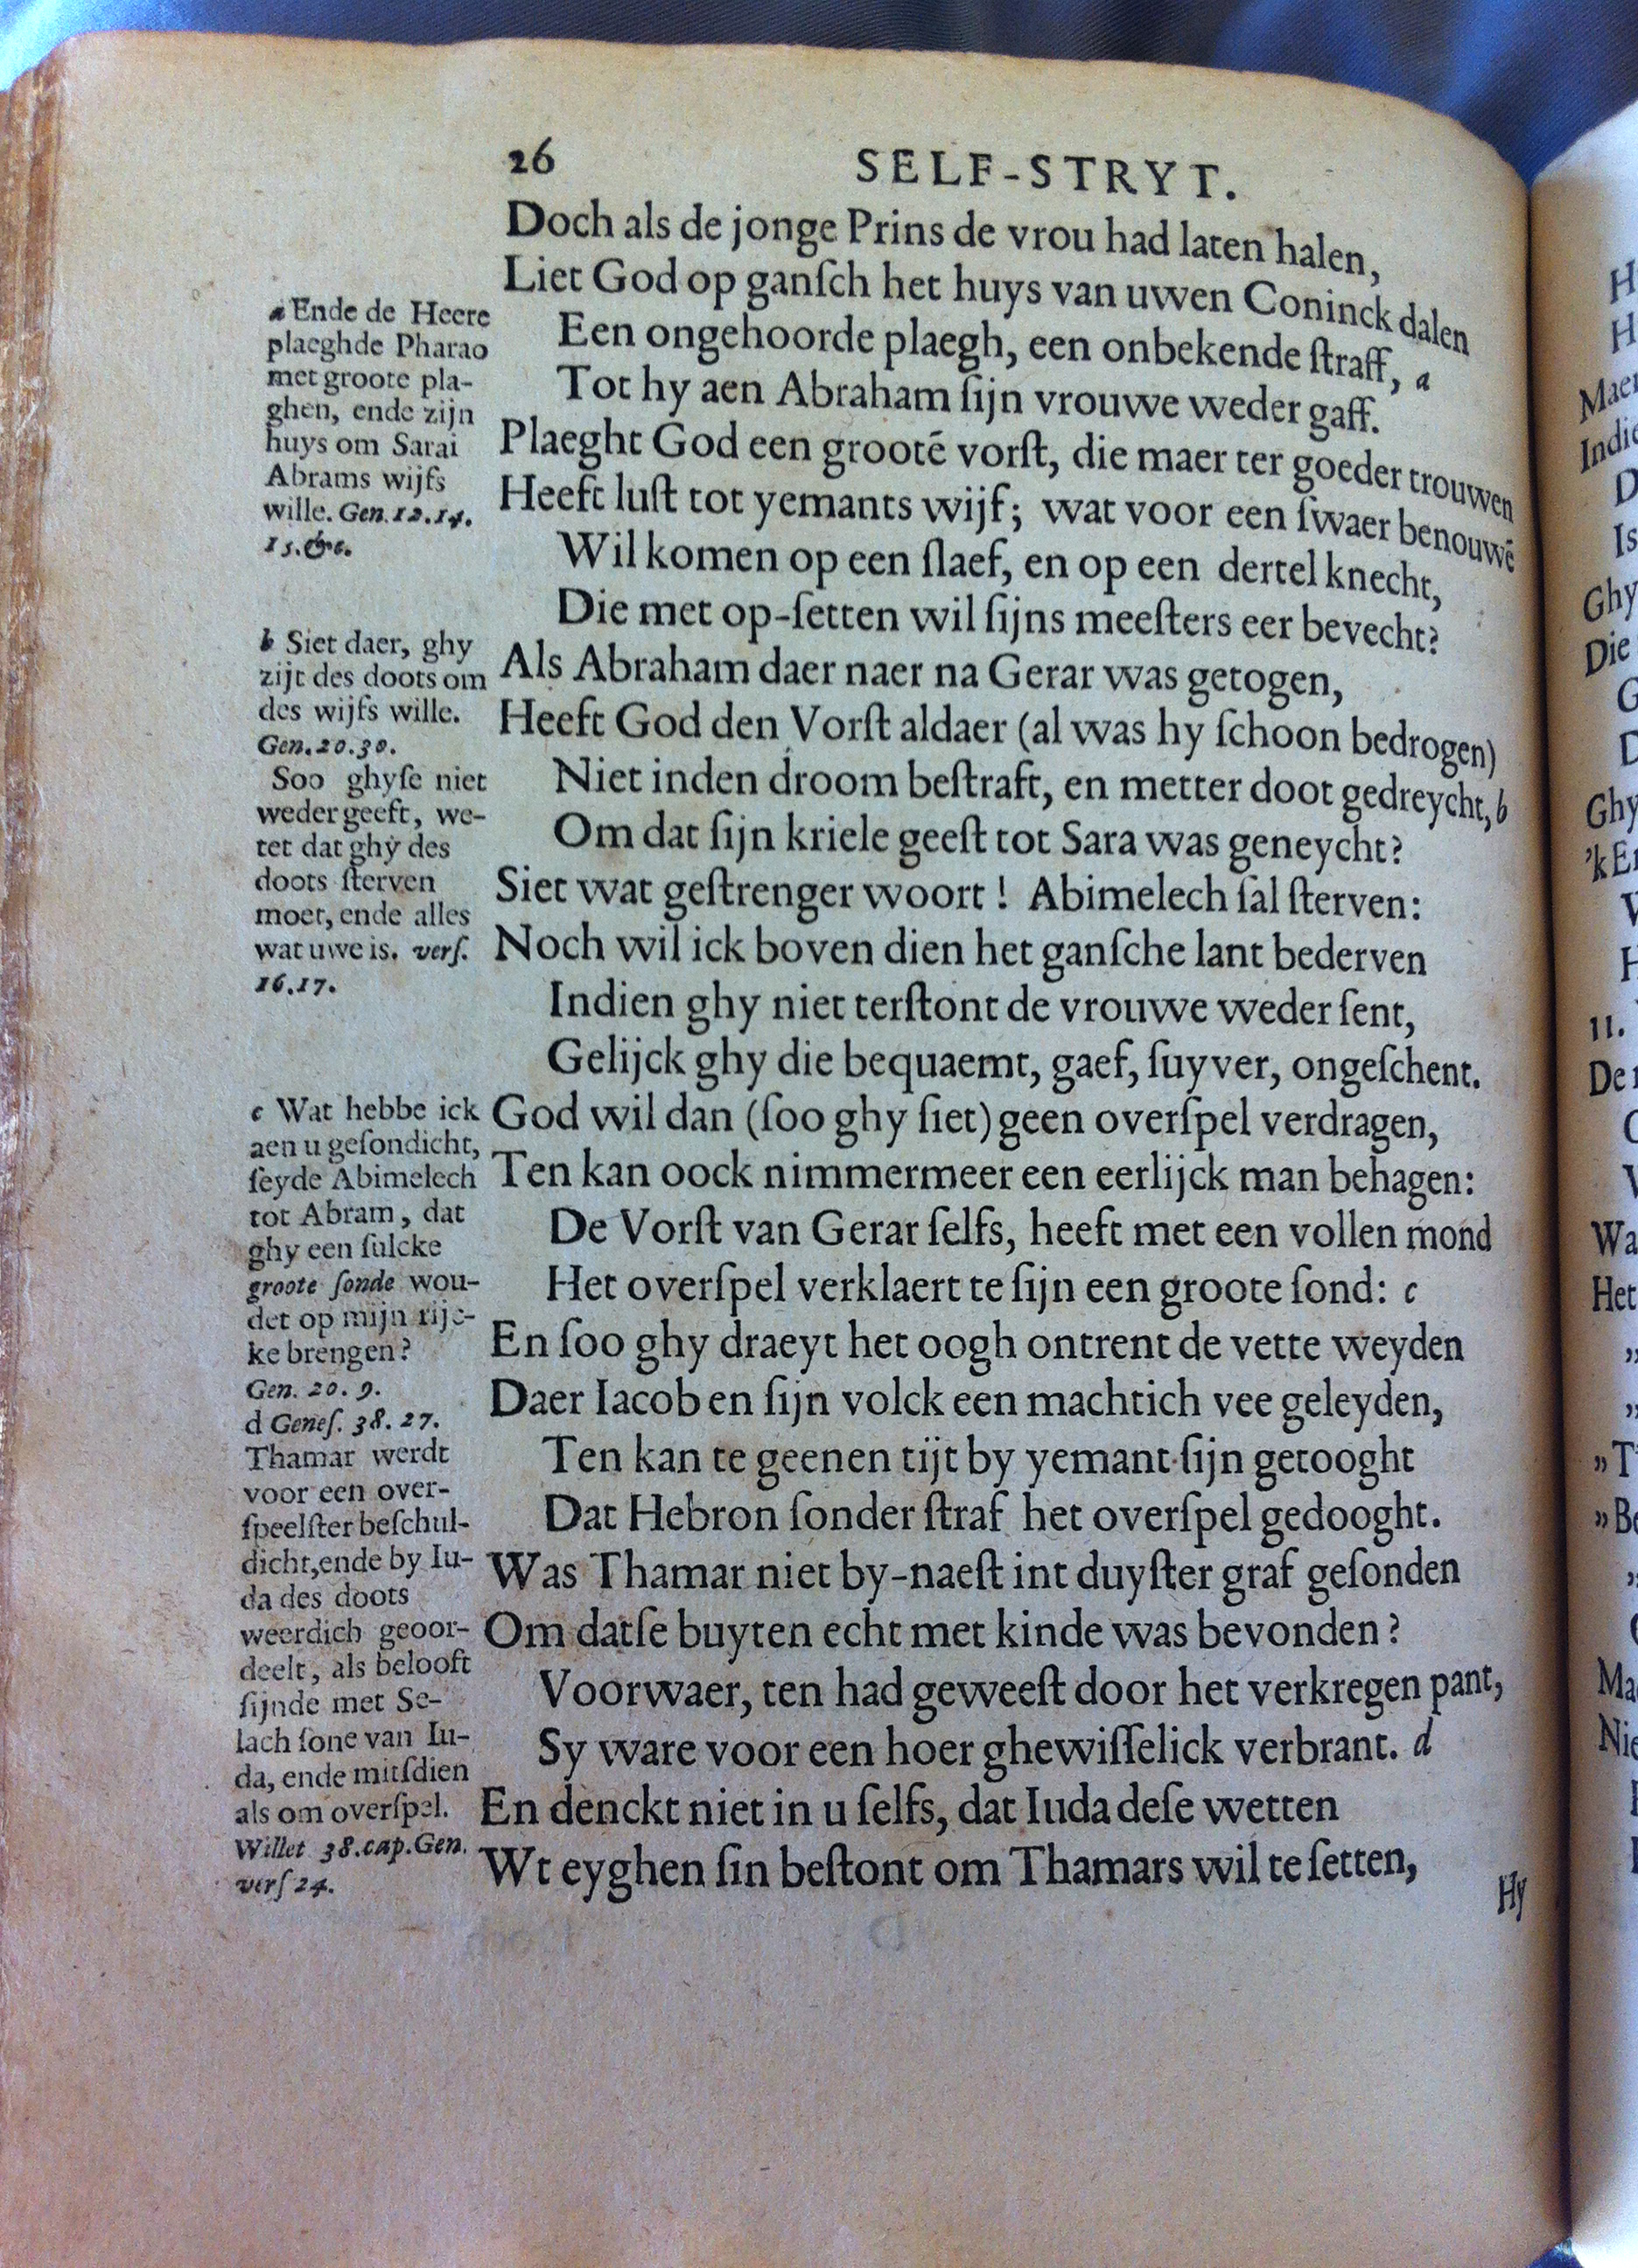 26 SELF-STRYT.
Doch als de jonge Prins de vrou had laten halen,
Liet God op ganſch het huys van uwen Coninck dalen
Een ongehoorde plaegh, een onbekende ſtraff, a
Tot hy aen Abraham ſijn vrouwe weder gaff.
Plaeght God een grootē vorſt, die maer ter goeder trouwen
Heeft luſt tot yemants wijf; wat voor een ſwaer benouwē
Wil komen op een ſlaef, en op een dertel knecht,
Die met op-ſetten wil ſijns meeſters eer bevecht?
Als Abraham daer naer na Gerar was getogen,
Heeft God den Vorſt aldaer (al was hy ſchoon bedrogen)
Niet inden droom beſtraft, en metter doot gedreycht, b
Om dat ſijn kriele geeſt tot Sara was geneycht?
Siet wat geſtrenger woort! Abimelech ſal ſterven:
Noch wil ick boven dien het ganſche lant bederven
Indien ghy niet terſtont de vrouwe weder ſent,
Gelijck ghy die bequaemt, gaef, ſuyver, ongeſchent.
God wil dan (ſoo ghy ſiet) geen overſpel verdragen,
Ten kan oock nimmermeer een eerlijck man behagen:
De Vorſt van Gerar ſelfs, heeft met een vollen mond
Het overſpel verklaert te ſijn een groote ſond: c
En ſoo ghy draeyt het oogh ontrent de vette weyden
Daer Iacob en ſijn volck een machtich vee geleyden,
Ten kan te geenen tijt by yemant ſijn getooght
Dat Hebron ſonder ſtraf het overſpel gedooght.
Was Thamar niet by-naeſt int duyſter graf geſonden
Om datſe buyten echt met kinde was bevonden?
Voorwaer, ten had geweeſt door het verkregen pant,
Sy ware voor een hoer ghewiſſelick verbrant. d
En denckt niet in u ſelfs, dat Iuda deſe wetten
Wt eyghen ſin beſtont om Thamars wil te ſetten,
Hy
a Ende de Heere
plaeghde Pharao
met groote pla-
ghen, ende zijn
huys om Sarai
Abrams wijfs
wille. Gen. 12.14.
15.&c.
b Siet daer, ghy
zijt des doots om
des wijfs wille.
Gen. 20.30.
Soo ghyſe niet
weder geeft, we-
tet dat ghy des
doots ſterven
moet, ende alles
wat uwe is. verſ.
16.17.
c Wat hebbe ick
aen u geſondicht,
ſeyde Abimelech
tot Abram, dat
ghy een ſulcke
groote ſonde wou-
det op mijn rijc-
ke brengen?
Gen. 20. 9.
d Geneſ. 38. 27.
Thamar werdt
voor een over-
ſpeelſter beſchul-
dicht, ende by Iu-
da des doots
weerdich geoor-
deelt, als belooft
ſijnde met Se-
lach ſone van Iu-
da, ende mitſdien
als om overſpel.
Willet 38.cap.Gen.
verſ 24.